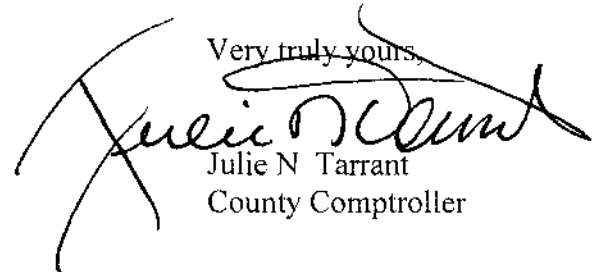 Very truly yours,
Julie N Tarrant
Julie N Tarrant
County Comptroller